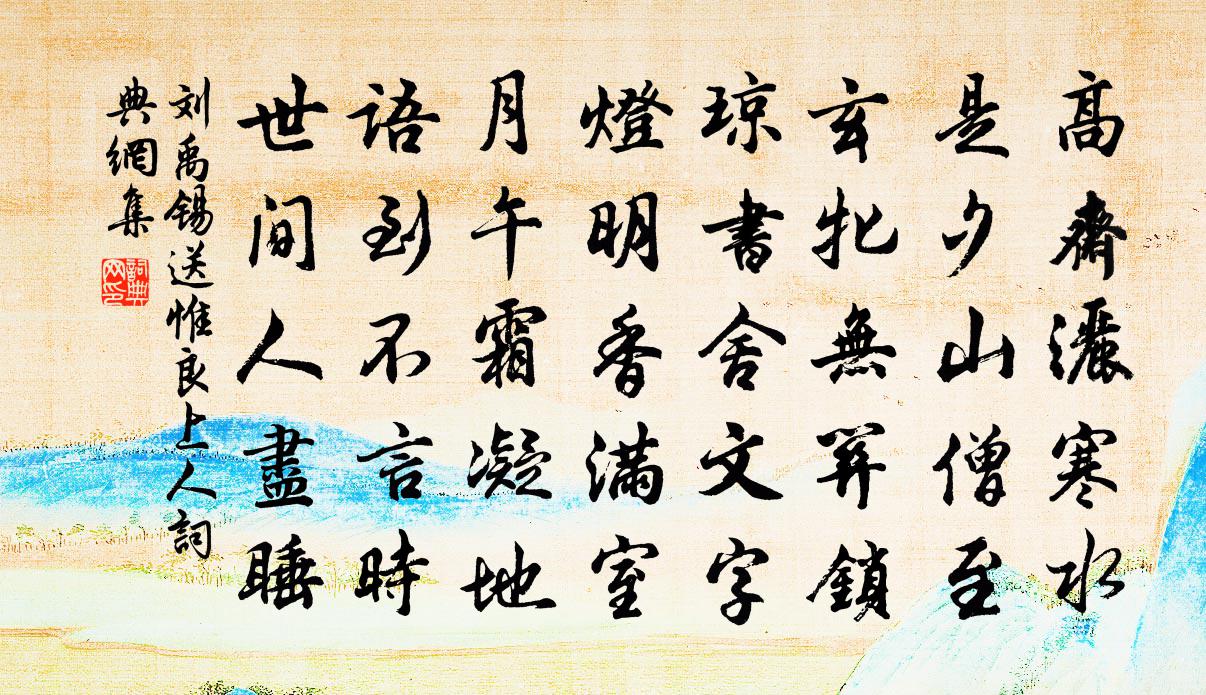 高齋灑寒水
是夕山僧至
玄牝無關鎖
琼書舍文字
燈明香滿室
月午霜凝地
語到不言時
世间人盡睡
刘禹锡送惟良上人詞
典網集
詞典網印